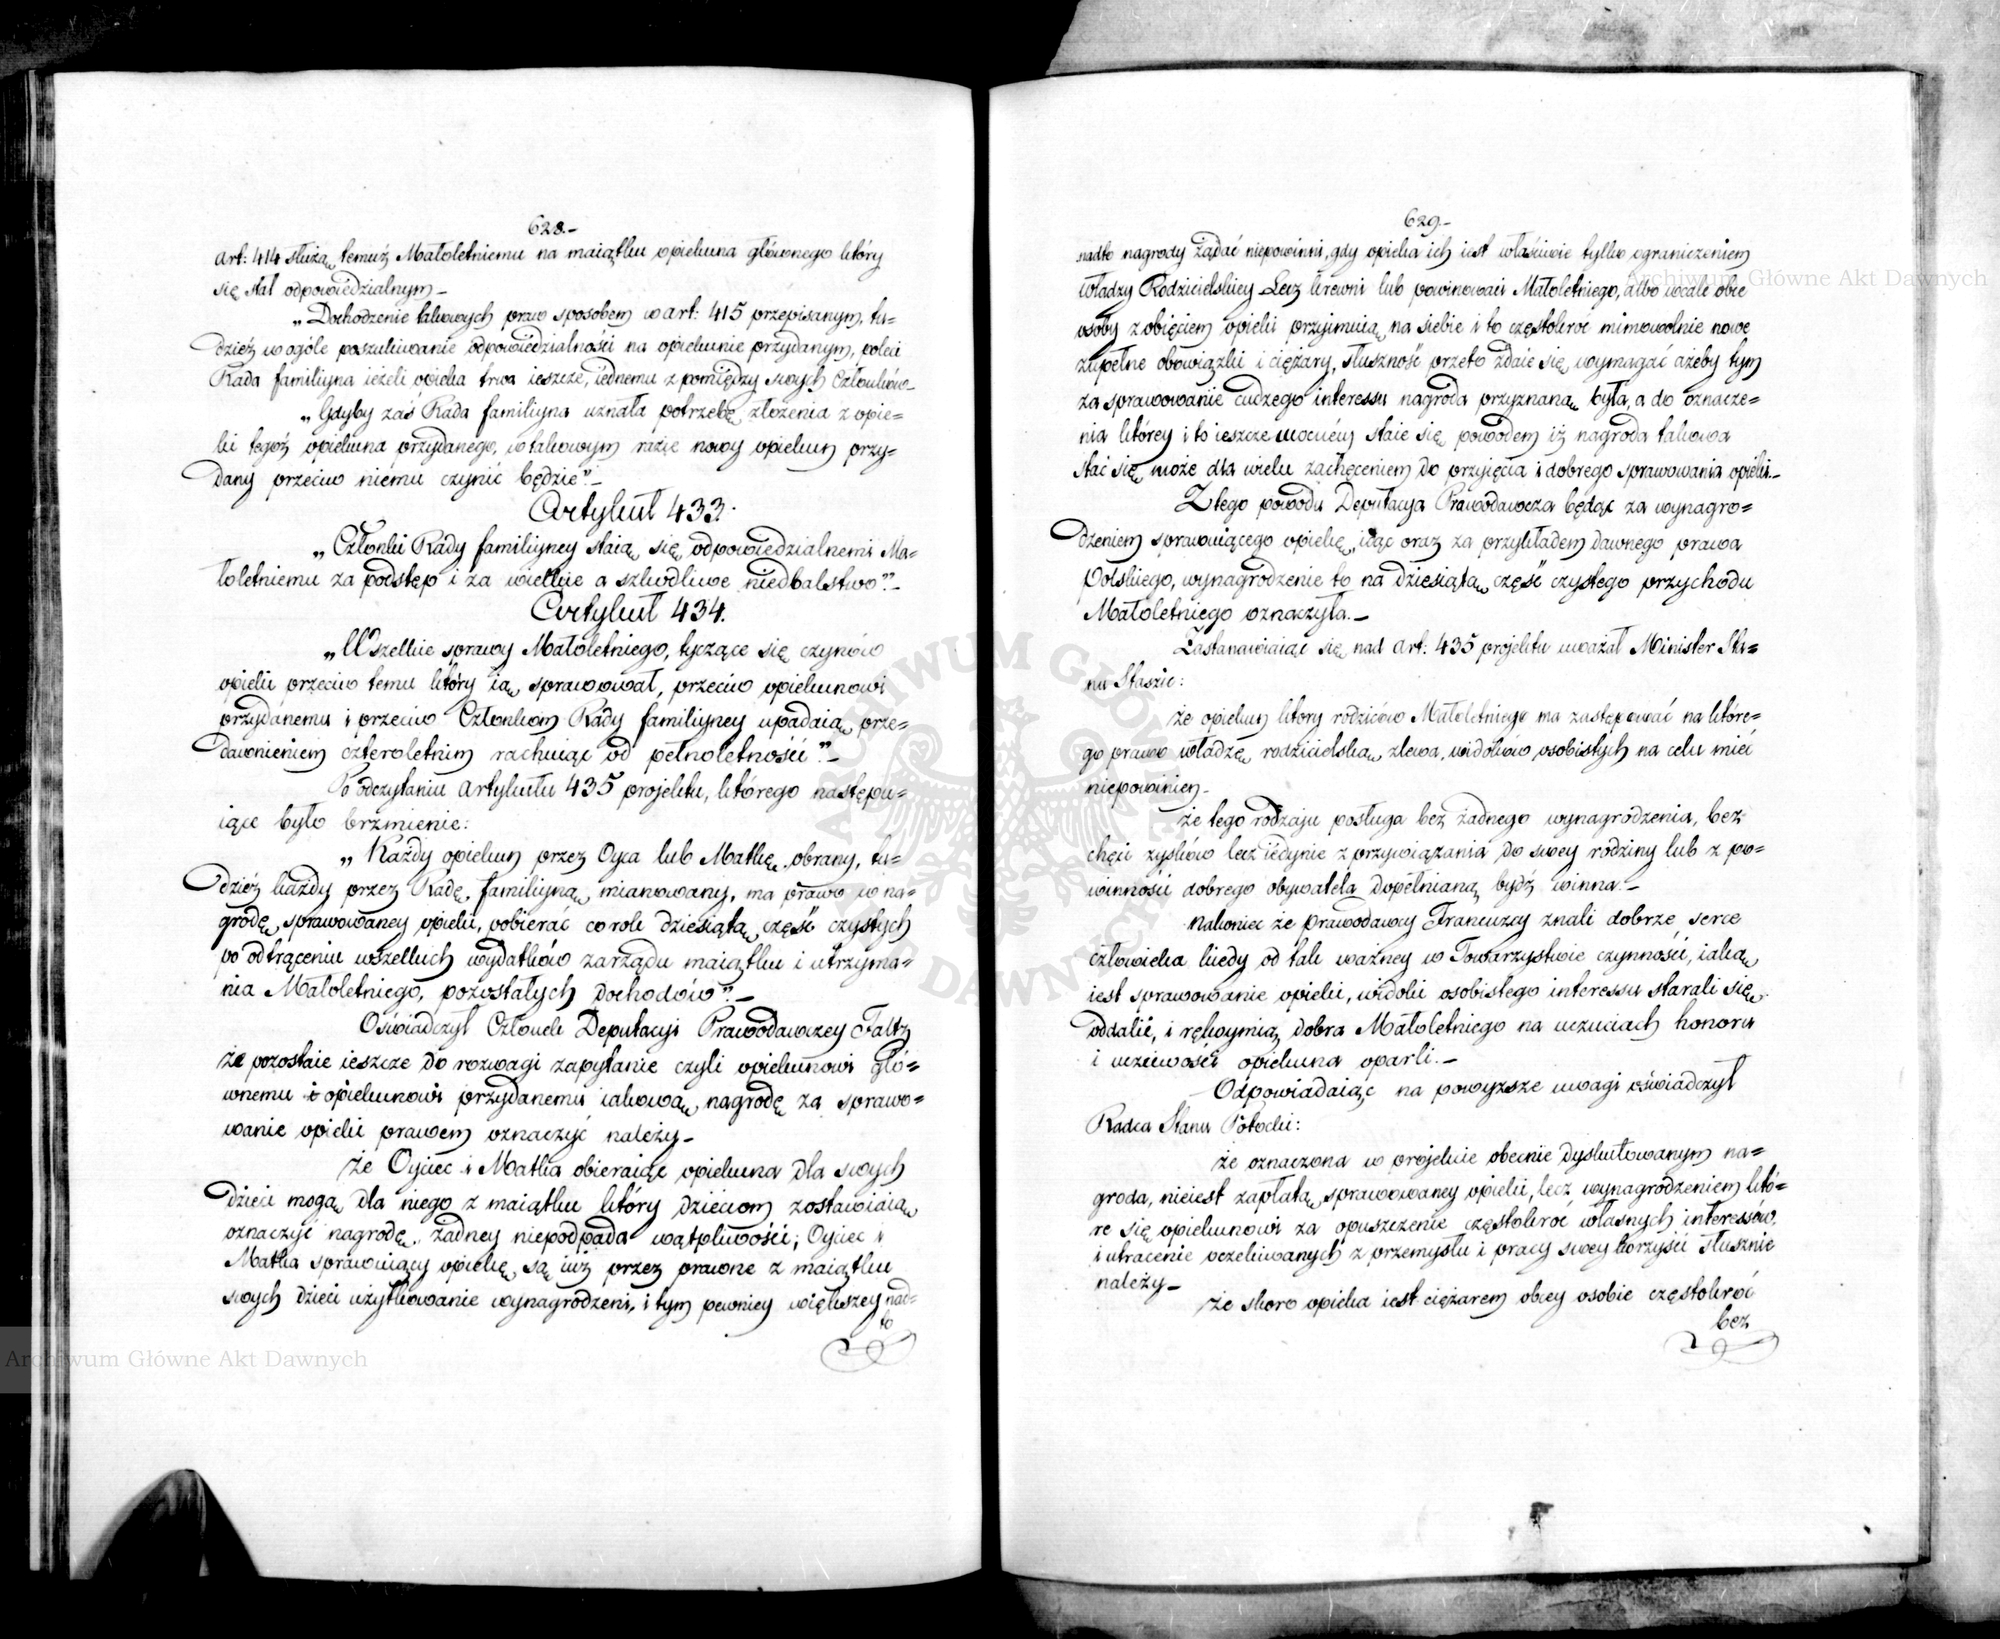 628.-
art: 414 służą temuż Małoletniemu na maiątku opiekuna głównego który
się stał odpowiedzialnym_
„Dochodzenie takowych praw sposobem w art: 415 przepisanym, tu=
dzież w ogóle poszukiwanie odpowiedzialności na opiekunie przydanym, poleci
Rada familiyna ieżeli opieka trwa ieszcze, iednemu z pomiędzy swych Członków_
„Gdyby zaś Rada familiyna uznała potrzebę złożenia z opie=
ki tegoż opiekuna przydanego, w takowym razie nowy opiekun przy=
dany przeciw niemu czynić będzie”_
Artykuł 433.
„Członki Rady familiyney staią się odpowiedzialnemi Ma=
łoletniemu za podstęp i za wielkie a szkodliwe niedbalstwo”_
Artykuł 434.
„Wszelkie sprawy Małoletniego, tyczące się czynów
opieki przeciw temu który ią sprawował, przeciw opiekunowi
przydanemu i przeciw Członkom Rady familiyney upadaią prze=
dawnieniem czteroletnim rachuiąc od pełnoletności”_
Po odczytaniu artykułu 435 projektu, którego następu=
iące było brzmienie:
„Każdy opiekun przez Oyca lub Matkę obrany, tu=
dzież każdy przez Radę familiyną mianowany, ma prawo w na=
grodę sprawowaney opieki, pobierać co rok dziesiątą część czystych
po odtrąceniu wszelkich wydatków zarządu maiątku i utrzyma=
nia Małoletniego, pozostałych dochodów”_
Oświadczył Członek Deputacyi Prawodawczey Faltz
że pozostaie ieszcze do rozwagi zapytanie czyli opiekunowi głó=
wnemu i opiekunowi przydanemu iakową nagrodę za sprawo=
wanie opieki prawem oznaczyć należy_
że Oyciec i Matka obieraiąc opiekuna dla swych
dzieci mogą dla niego z maiątku który dzieciom zostawiaią
oznaczyć nagrodę żadney niepodpada wątpliwości; Oyciec i
Matka sprawuiący opiekę są iuż przez prawne z maiątku
swych dzieci użytkowanie wynagrodzeni, i tym pewniey większey nad=
to
629.-
nadto nagrody żądać niepowinni, gdy opieka ich iest właściwie tylko ograniczeniem
władzy Rodzicielskiey_Lecz krewni lub powinowaci Małoletniego, albo wcale obce
osoby z obięciem opieki przyimuią na siebie i to częstokroć mimowolnie nowe
zupełne obowiązki i ciężary, słuszność przeto zdaie się wymagać ażeby tym
za sprawowanie cudzego interessu nagroda przyznaną była, a do oznacze=
nia którey i to ieszcze staie się powodem iż nagroda takowa
stać się może dla wielu zachęceniem do przyięcia i dobrego sprawowania opieki_
Z tego powodu Deputacya Prawodawcza będąc za wynagro=
dzeniem sprawuiącego opiekę, idąc oraz za przykładem dawnego prawa
Polskiego, wynagrodzenie to na dziesiątą część czystego przychodu
Małoletniego oznaczyła._
Zastanawiaiąc się nad art: 435 projektu uważał Minister Sta=
nu Staszic:
że opiekun który rodziców Małoletniego ma zastępować na które=
go prawo władzę rodzicielską zlewa, widoków osobistych na celu mieć
niepowinien_
że tego rodzaju posługa bez żadnego wynagrodzenia, bez
chęci zysków lecz iedynie z przywiązania do swey rodziny lub z po=
winności dobrego obywatela dopełnianą bydź winna._
nakoniec że prawodawcy Francuzcy znali dobrze serce
człowieka kiedy od tak ważney w Towarzystwie czynności, iaką
iest sprawowanie opieki, widoki osobistego interessu starali się
oddalić, i rękoymią dobra Małoletniego na uczuciach honoru
i uczciwości opiekuna oparli._
Odpowiadaiąc na powyższe uwagi oświadczył
Radca Stanu Potocki:
że oznaczona w projekcie obecnie dyskutowanym na=
groda, nieiest zapłatą sprawowaney opieki, lecz wynagrodzeniem któ=
re się opiekunowi za opuszczenie częstokroć własnych interessów
i utracenie oczekiwanych z przemysłu i pracy swey korzyści słusznie
należy_
że skoro opieka iest ciężarem obcey osobie częstokroć
bez
Archiwum Główne Akt Dawnych
Archiwum Główne Akt Dawnych
ARCHIWUM GŁÓWNE AKT DAWNYCH